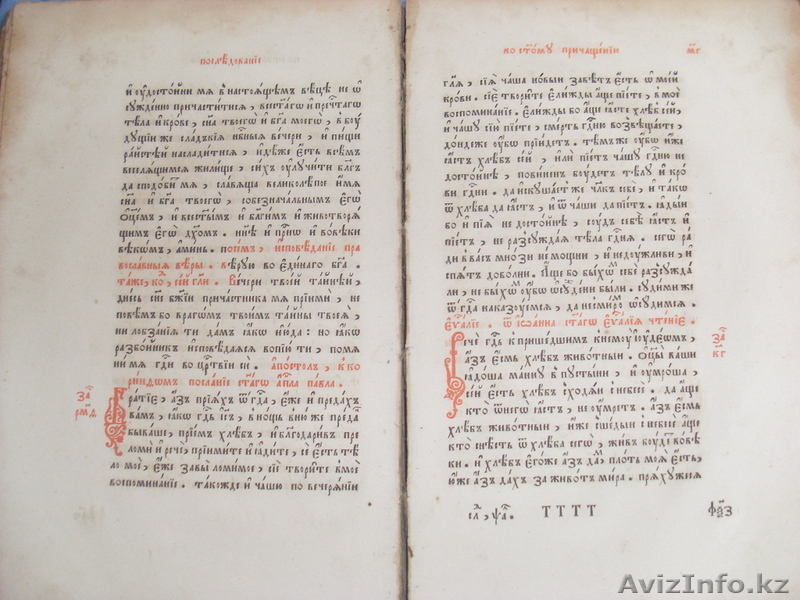 послѣдованїе
и҆ ᲂу҆достоини мѧ в настоѧ́щемъ вѣ́цѣ не ѡ҆
сꙋжде́нно причасти́тисѧ , все ст҃а́гѡ и҆ преч҇таго
тѣ́ла и҆ кро́ве , сн҃а твоегѡ̀ и҆ бг҃а моегѡ̀ , в бꙋ́
дꙋщїи же сла́дъкїѧ нбⷭ҇ныѧ вече́ри , и҆ пи́щи
ра́йстѣй наслади́тисѧ , и҆дѣ́же є҆́сть всѣ́мъ
веселѧ́щимсѧ жили́ще , си́хъ ᲂу҆лꙋчи́ти бл҃гъ
да сподо́би мѧ , сла́вѧща великолѣ́пое и҆́мѧ
сн҃а и҆ бг҃а твоегѡ̀ , собезнача́льнымъ є҆гѡ̀
ѻ҆ц҃е́мъ , и҆ всест҃ы́мъ и҆ бл҃ги́мъ и҆ животворѧ́
щимъ є҆гѡ̀ дх҃омъ . нн҃ѣ и҆ при́снѡ и҆ во́вѣки
вѣкѡ́мъ , а҆ми́нь . посе́мъ , и҆сповѣ́данїе пра
восла́вныѧ вѣ́ры . вѣ́рꙋю во є҆ди́наго бг҃а .
та́же , ко , се́й гл҃и . Ве́чери твое́й та́йнѣй ,
дне́сь сн҃е бж҃їи прича́стника мѧ прїимѝ , не
повѣ́мъ бо врагѡ́мъ твои́мъ та́йны твоеѧ̀
ни лобза́нїѧ ти да́мъ ꙗ҆́кѡ и҆ю́да : но ꙗ҆́кѡ
разбо́йникъ и҆сповѣ́даѧсѧ вопїю́ ти , помѧ
ни́ мѧ гдⷭ҇и во црⷭ҇твїи сѝ . а҆по́столъ , к ко
ри́нѳомъ посла́нїе ст҃а́гѡ а҆пⷭ҇ла па́вла .
Бра́тїе , а҆́зъ прїѧ́хъ ѿ гдⷭ҇а , є҆́же и҆ преда́хъ
ва́мъ , ꙗ҆́кѡ гдⷭ҇ь і҆с҃ъ , в но́щь в ню́же пре́данъ
быва́ше , прїе́мъ хлѣ́бъ , и҆ бл҃годари́въ пре
ломѝ и҆ речѐ прїими́те и҆ ꙗ҆ди́те , сѐ є҆́сть тѣ́
ло моѐ , є҆́же за вы̀ ломи́мое , сїѐ твори́те в моѐ
воспомина́нїе . та́кожде и҆ ча́шꙋ по вече́рѧнїи
ко ст҃о́мꙋ причаще́нїи
м҃г
гл҃ѧ , сїѧ̀ ча́ша но́выи завѣ́тъ є҆́сть ѡ҆ мое́й
кро́ви . сїѐ твори́те є҆ли́жды а҆́ще пїе́те , в моѐ
воспомина́нїе . є҆ли́жды бо а҆́ще ꙗ҆́сте хлѣ́бъ се́й ,
и҆ ча́шꙋ сїю̀ пїе́те , сме́рть гдⷭ҇ню возвѣща́ете ,
до́ндеже ѻ҆́нъ прїи́детъ . тѣ́мже ᲂу҆̀бѡ и҆́же
ꙗ҆́стъ хлѣ́бъ се́й , и҆лѝ пїе́тъ ча́шꙋ гдⷭ҇ню не
досто́йнѣ , пови́ненъ бꙋ́детъ тѣ́лꙋ и҆ кро́
ви гдⷭ҇ни . да и҆скꙋша́етже чл҃вкъ себѐ , и҆ та́кѡ
ѿ хлѣ́ба да ꙗ҆́стъ , и҆ ѿ ча́ши да пїе́тъ . ꙗ҆ды́и
бо и҆ пїѧ̀ не досто́йнѣ , сꙋ́дъ себѣ̀ ꙗ҆́стъ и҆
пїе́тъ , не разсꙋжда́ѧ тѣ́ла гдⷭ҇нѧ . сегѡ̀ ра
ди в ва́съ мно́зи не́мощни , и҆ недꙋжли́ви , и҆
спѧ́тъ дово́лни . А҆́ще бо бы́хѡмъ себѐ разсꙋжда́
ли , не бы́хѡмъ ᲂу҆̀бѡ ѡ҆сꙋжде́ни бы́ли . сꙋди́ми же
ѿ гдⷭ҇а наказꙋ́емсѧ , да не с ми́ромъ ѡ҆сꙋ́димсѧ .
є҆ѵⷢ҇а́лїе . ѿ і҆ѡа́нна ст҃а́гѡ є҆ѵⷢ҇а́лїѧ чте́нїе .
Речѐ гдⷭ҇ь к прише́дшимъ к немꙋ̀ і҆ꙋде́ѡмъ ,
а҆́зъ є҆́смь хлѣ́бъ живо́тныи . ѻ҆тцы̀ ва́ши
ꙗ҆до́ша ма́ннꙋ в пꙋсты́ни , и҆ ᲂу҆мро́ша ,
се́й є҆́сть хлѣ́бъ сходѧ́и с небесѐ . да а҆́ще
кто̀ ѿ негѡ̀ ꙗ҆́стъ , не ᲂу҆́мретъ . а҆́зъ є҆́смь
хлѣ́бъ живо́тныи , и҆́же сше́дыи с небесѐ а҆́ще
кто̀ снѣ́сть ѿ хлѣ́ба сегѡ̀ , жи́въ бꙋ́детъ во вѣ́
ки . и҆ хлѣ́бъ є҆го́же а҆́зъ да́мъ , пло́ть моѧ̀ є҆́сть ,
ю҆́же а҆́зъ да́мъ за живо́тъ ми́ра . прѧ́хꙋсѧ
ТТТТ
AvizInfo.kz